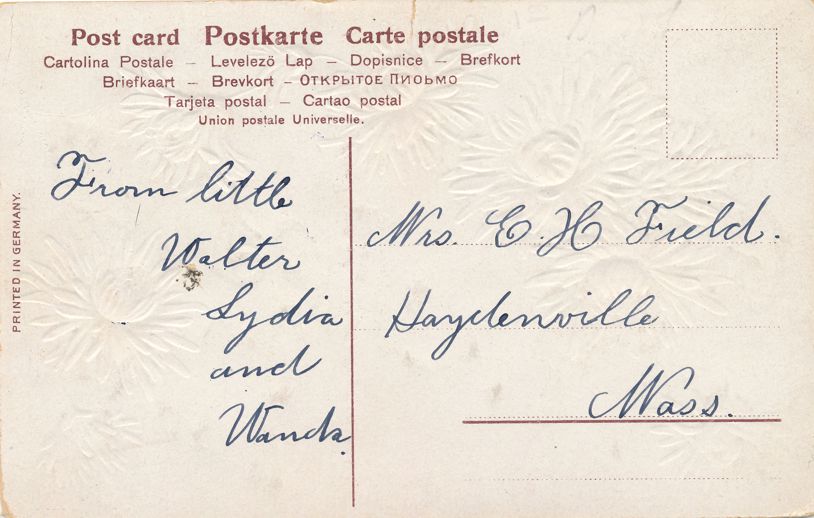 Post card Postkarte Carte postale
Cartolina Postale — Levelező Lap — Dopisnice — Brefkort
Briefkaart — Brevkort — ОТКРЫТОЕ ПИСЬМО
Tarjeta postal — Cartao postal
Union postale Universelle.
PRINTED IN GERMANY.
From little
Walter
Lydia
and
Wanda.
Mrs. E. H Field.
Haydenville
Mass.